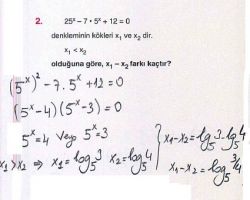 2. 25ˣ – 7 • 5ˣ + 12 = 0
denkleminin kökleri x₁ ve x₂ dir.
x₁ < x₂
olduğuna göre, x₁ – x₂ farkı kaçtır?
(5ˣ)² – 7.5ˣ + 12 = 0
(5ˣ – 4)(5ˣ – 3) = 0
5ˣ = 4 veya 5ˣ = 3
x₁ > x₂ ⇒ x₁ = log₅3 x₂ = log₅4
x₁ – x₂ = log₅3 – log₅4
x₁ – x₂ = log₅3/4